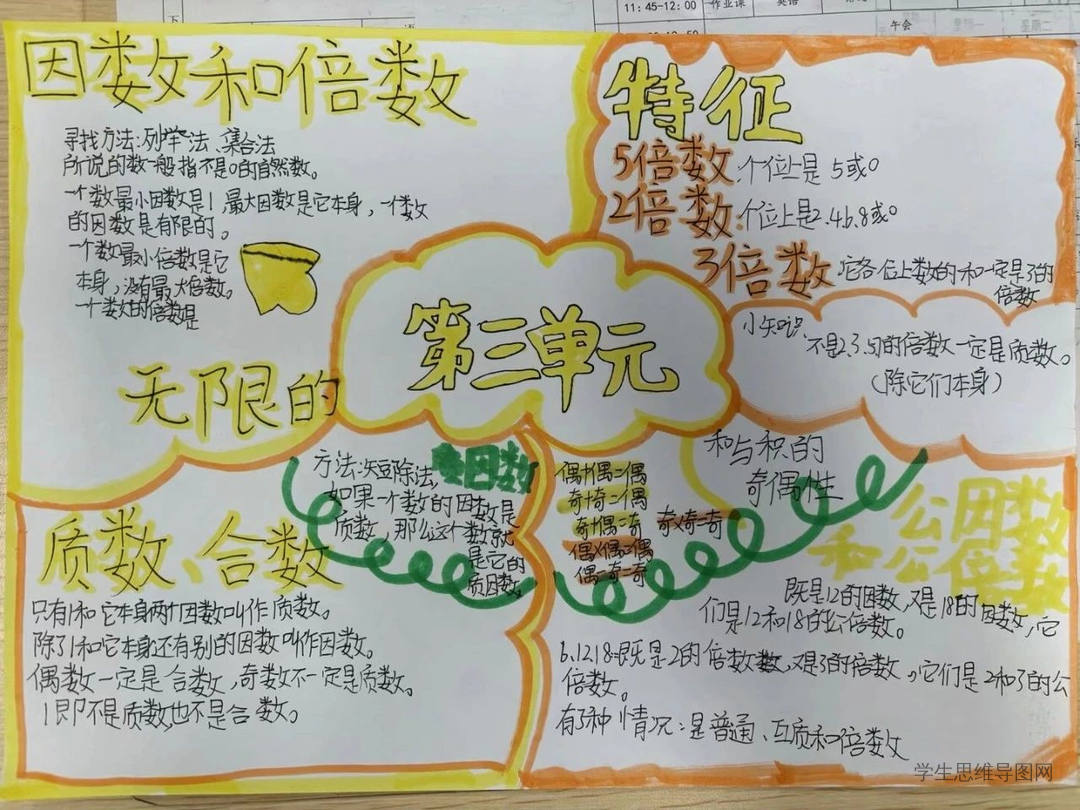 11:45-12:00 作业课 英语
午会
因数和倍数
寻找方法:列举法、集合法
所说的数一般指不是0的自然数。
一个数最小因数是1,最大因数是它本身,一个数
的因数是有限的。
一个数最小倍数是它
本身,没有最大倍数。
一个数的倍数是
无限的
特征
5倍数:个位上是5或0
2倍数:个位上是2.4.6.8或0
3倍数:它各位上数的和一定是3的
倍数
小知识:
不是2.3.5的倍数一定是质数。
(除它们本身)
第三单元
质数、合数
只有1和它本身两个因数叫作质数。
除了1和它本身还有别的因数叫作因数。
偶数一定是合数,奇数不一定是质数。
1即不是质数也不是合数。
质因数
方法:短除法
如果一个数的因数是
质数,那么这个数就
是它的
质因数。
和与积的
奇偶性
偶+偶=偶
奇+奇=偶
奇+偶=奇
奇×奇=奇
偶×偶=偶
偶×奇=偶
公因数
和公倍数
既是12的因数,又是18的因数,它
们是12和18的公倍数。
6.12.18既是2的倍数数,又是3的倍数,它们是2和3的公
倍数。
有3种情况:是普通、互质和倍数
学生思维导图网